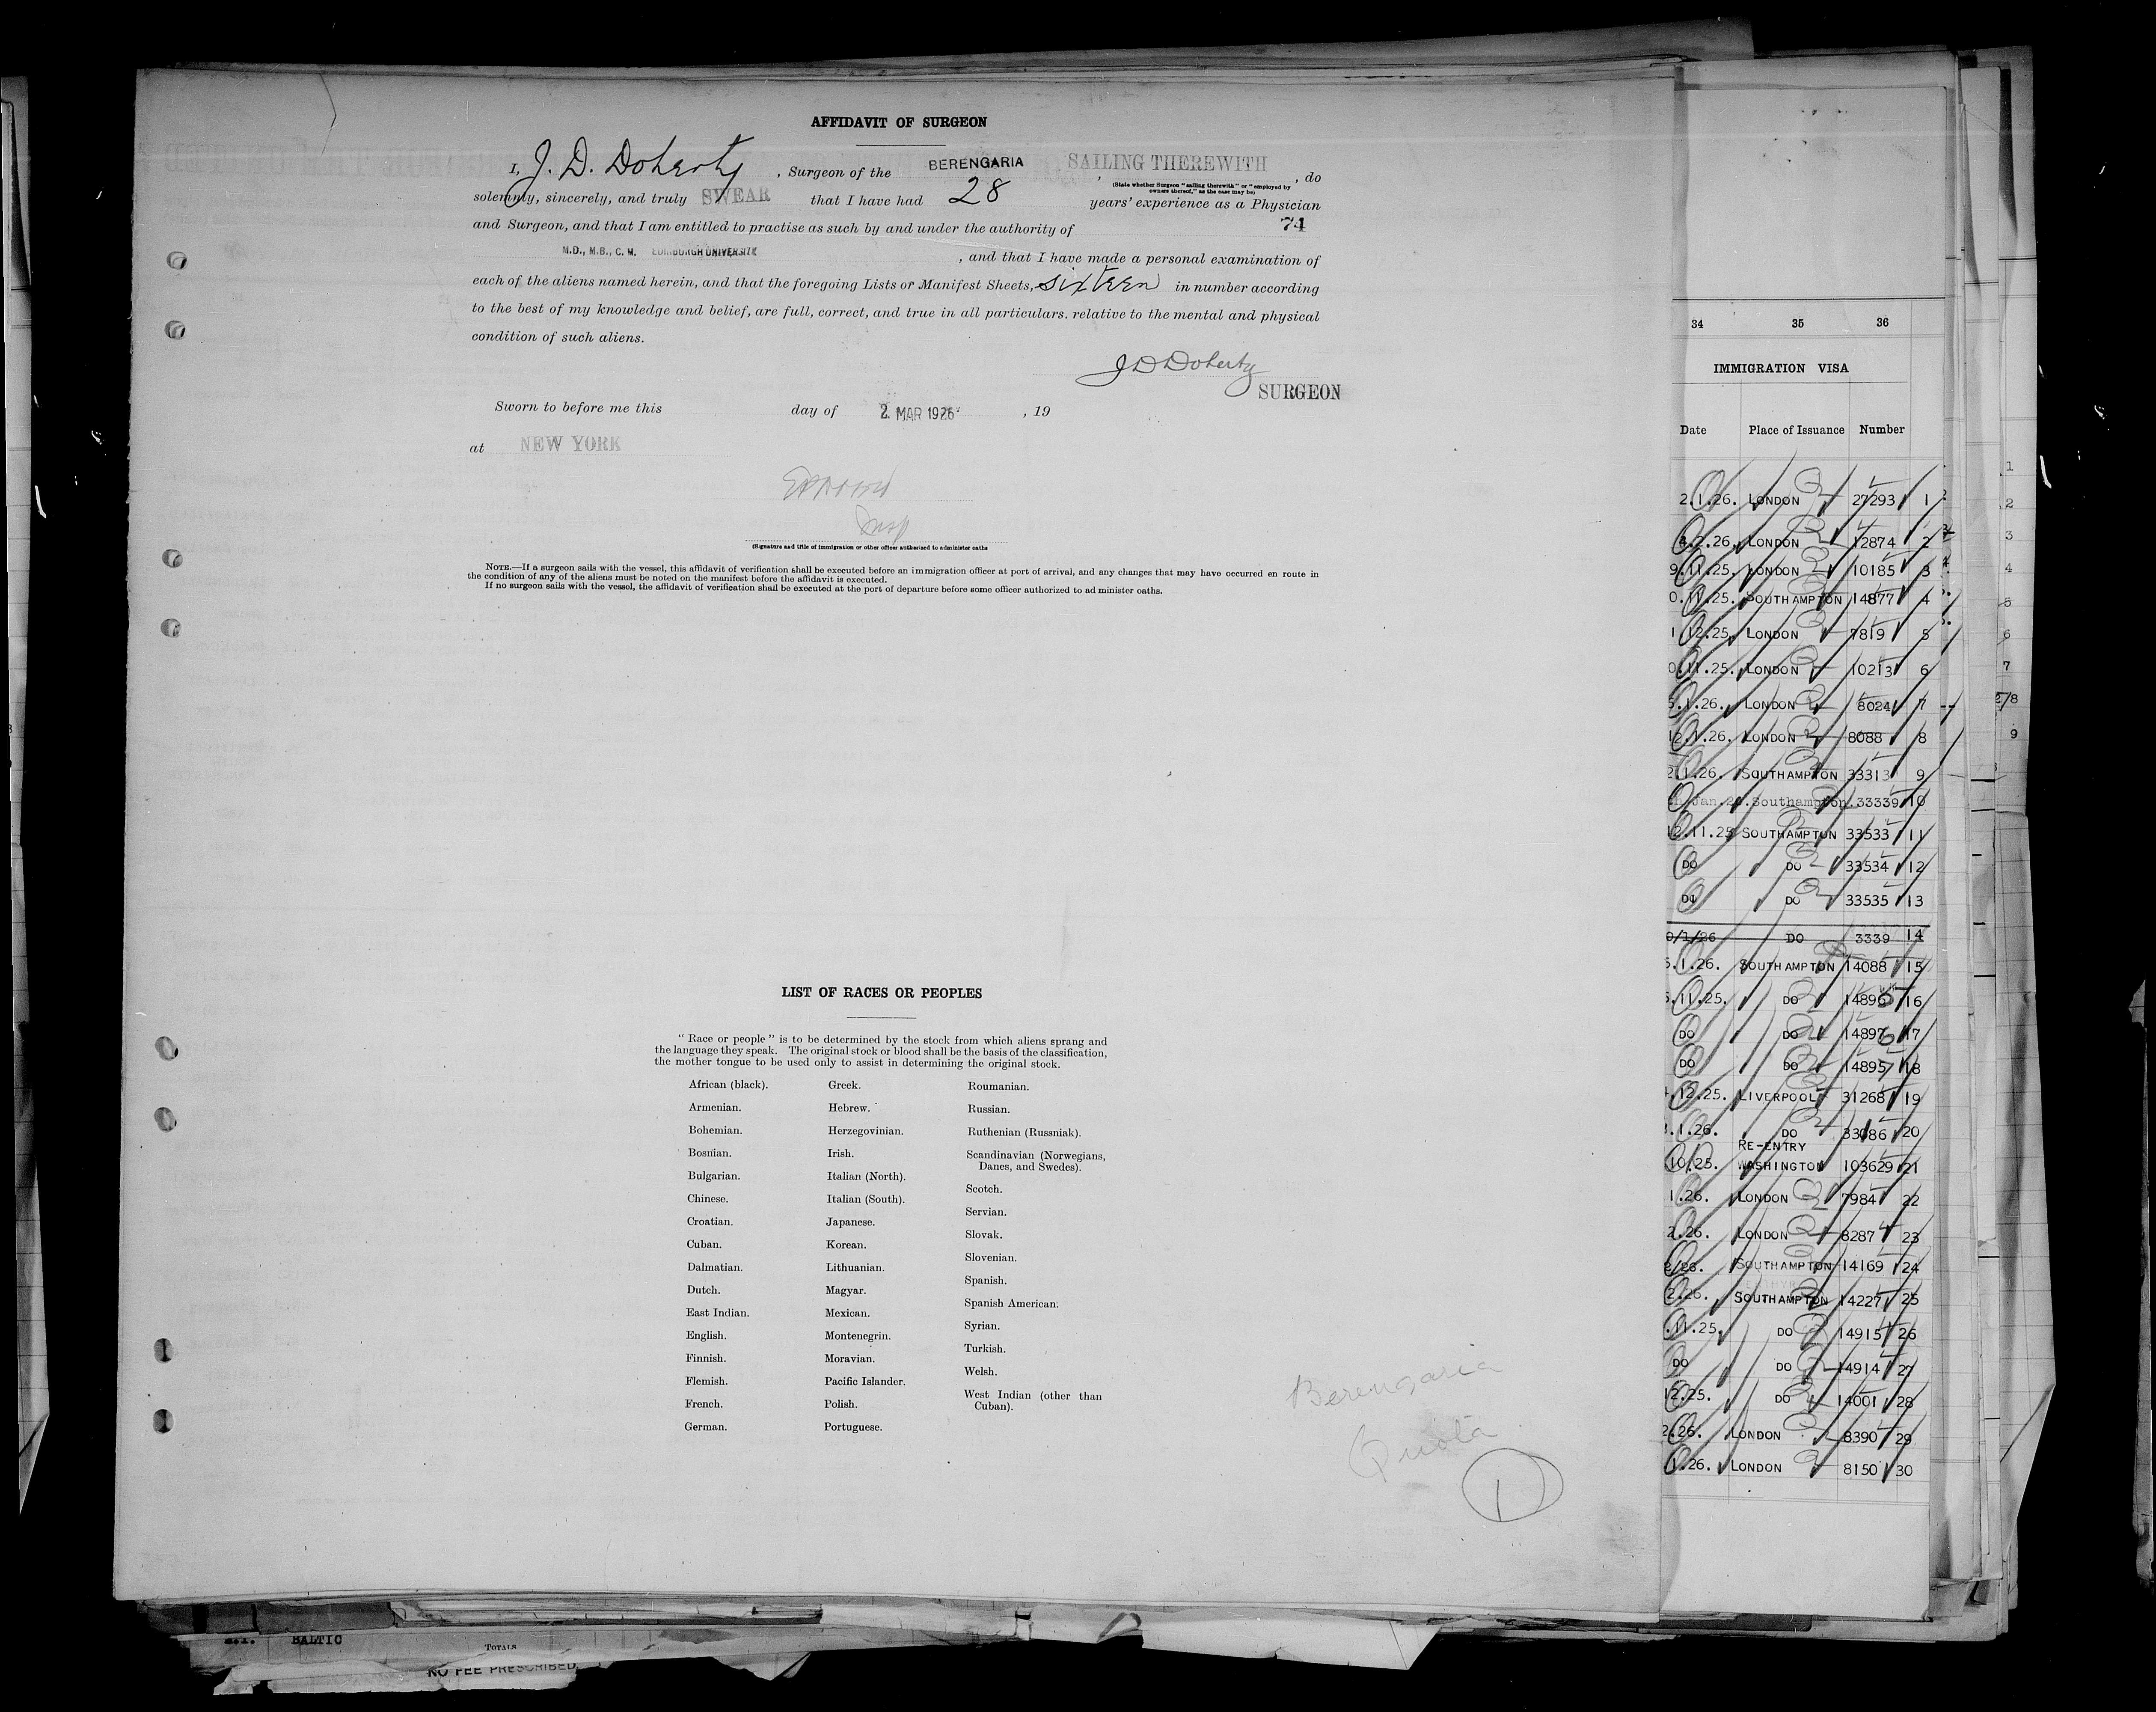 AFFIDAVIT OF SURGEON
I, J. D. Doherty , Surgeon of the BERENGARIA , SAILING THEREWITH , do
(State whether Surgeon "sailing therewith" or "employed by owners thereof," as the case may be)
solemnly, sincerely, and truly SWEAR that I have had 28 years' experience as a Physician
and Surgeon, and that I am entitled to practise as such by and under the authority of 74
M.D., M.B., C.M. EDINBURGH UNIVERSITY , and that I have made a personal examination of
each of the aliens named herein, and that the foregoing Lists or Manifest Sheets, sixteen in number according
to the best of my knowledge and belief, are full, correct, and true in all particulars. relative to the mental and physical
condition of such aliens.
J D Doherty
SURGEON
Sworn to before me this day of 2 MAR 1926 , 19
at NEW YORK
Insp
(Signature and title of immigration or other officer authorised to administer oaths
NOTE.—If a surgeon sails with the vessel, this affidavit of verification shall be executed before an immigration officer at port of arrival, and any changes that may have occurred en route in
the condition of any of the aliens must be noted on the manifest before the affidavit is executed.
If no surgeon sails with the vessel, the affidavit of verification shall be executed at the port of departure before some officer authorized to ad minister oaths.
LIST OF RACES OR PEOPLES
"Race or people" is to be determined by the stock from which aliens sprang and
the language they speak. The original stock or blood shall be the basis of the classification,
the mother tongue to be used only to assist in determining the original stock.
African (black).
Armenian.
Bohemian.
Bosnian.
Bulgarian.
Chinese.
Croatian.
Cuban.
Dalmatian.
Dutch.
East Indian.
English.
Finnish.
Flemish.
French.
German.
Greek.
Hebrew.
Herzegovinian.
Irish.
Italian (North).
Italian (South).
Japanese.
Korean.
Lithuanian.
Magyar.
Mexican.
Montenegrin.
Moravian.
Pacific Islander.
Polish.
Portuguese.
Roumanian.
Russian.
Ruthenian (Russniak).
Scandinavian (Norwegians,
Danes, and Swedes).
Scotch.
Servian.
Slovak.
Slovenian.
Spanish.
Spanish American.
Syrian.
Turkish.
Welsh.
West Indian (other than
Cuban).
Berengaria
Quota
1
34 35 36
IMMIGRATION VISA
Date Place of Issuance Number
2.1.26. LONDON 27293 1
.2.26. LONDON 12874 2
9.11.25. LONDON 10185 3
0.11.25. SOUTHAMPTON 14877 4
1 12.25. LONDON 7819 5
0.11.25. LONDON 10213 6
5.1.26. LONDON 8024 7
12.1.26. LONDON 8088 8
2.1.26. SOUTHAMPTON 33313 9
Jan.2 Southampton. 33339 10
12.11.25 SOUTHAMPTON 33533 11
DO DO 33534 12
DO DO 33535 13
0/1/26 DO 3339 14
5.1.26. SOUTHAMPTON 14088 15
5.11.25. DO 1489 5 16
DO DO 1489 6 17
DO DO 1489 7 18
.12.25. LIVERPOOL 31268 19
.1.26. DO 33086 20
RE-ENTRY
10.25. WASHINGTON 103629 21
1.26. LONDON 7984 22
2.26. LONDON 8287 23
2/26. SOUTHAMPTON 14169 24
2.26. SOUTHAMPTON 14227 25
.11.25. DO 14915 26
DO DO 14914 27
12.25. DO 14001 28
2.26. LONDON 8390 29
1.26. LONDON 8150 30
1
2
3
4
5
6
7
8
9
BALTIC
TOTALS
NO FEE PRESCRIBED